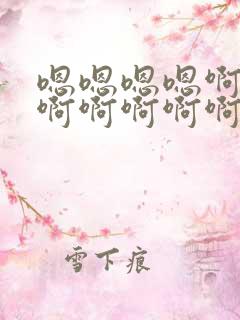 嗯嗯嗯嗯啊
啊啊啊啊啊
雪下痕